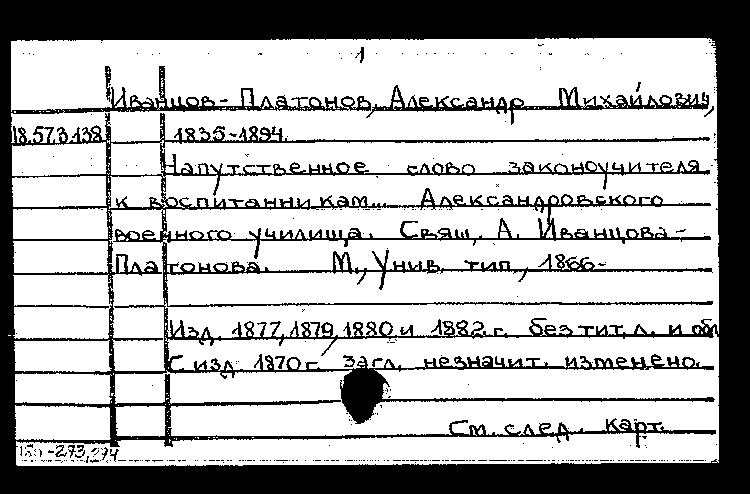 1
Иванцов-Платонов, Александр Михайлович,
18.573.138 1835-1894.
Напутственное слово законоучителя
к воспитанникам... Александровского
военного училища. Свящ. А. Иванцова-
Платонова. М., Унив. тип., 1866-
Изд. 1877, 1879, 1880 и 1882 г. без тит. л. и обл
С изд. 1870 г. загл. незначит. изменено.
См. след. карт.
-293,294